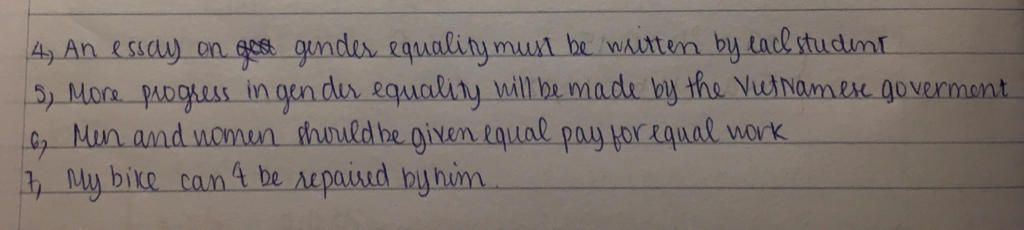 4, An essay on gender equality must be written by each student
5, More progress in gender equality will be made by the Vietnamese goverment
6, Men and women should be given equal pay for equal work
7, My bike can't be repaired by him.